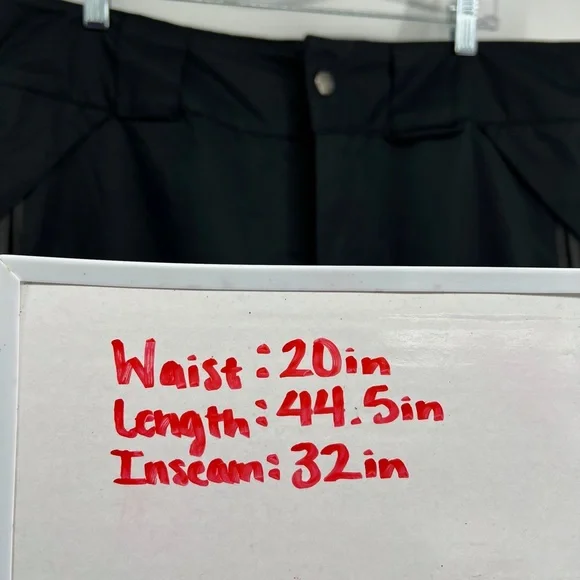 Waist: 20in
Length: 44.5in
Inseam: 32in